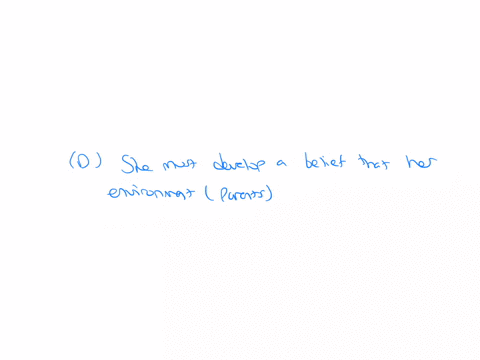 (D) She must develop a belief that her
environment (parents)